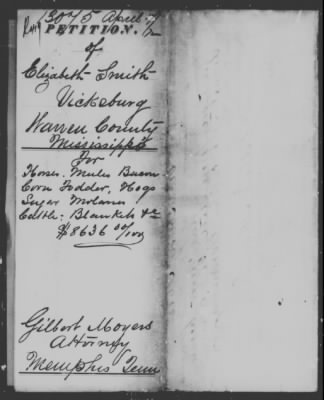 13045 April
PETITION.
of
Elizabeth Smith
Vicksburg
Warren County
Mississippi
For
Horses. Mules Bacon
Corn Fodder, Hogs
Sugar Molasses
Cattle: Blankets &c
$8636 00/100
Gilbert Moyers
Attorney
Memphis Tenn